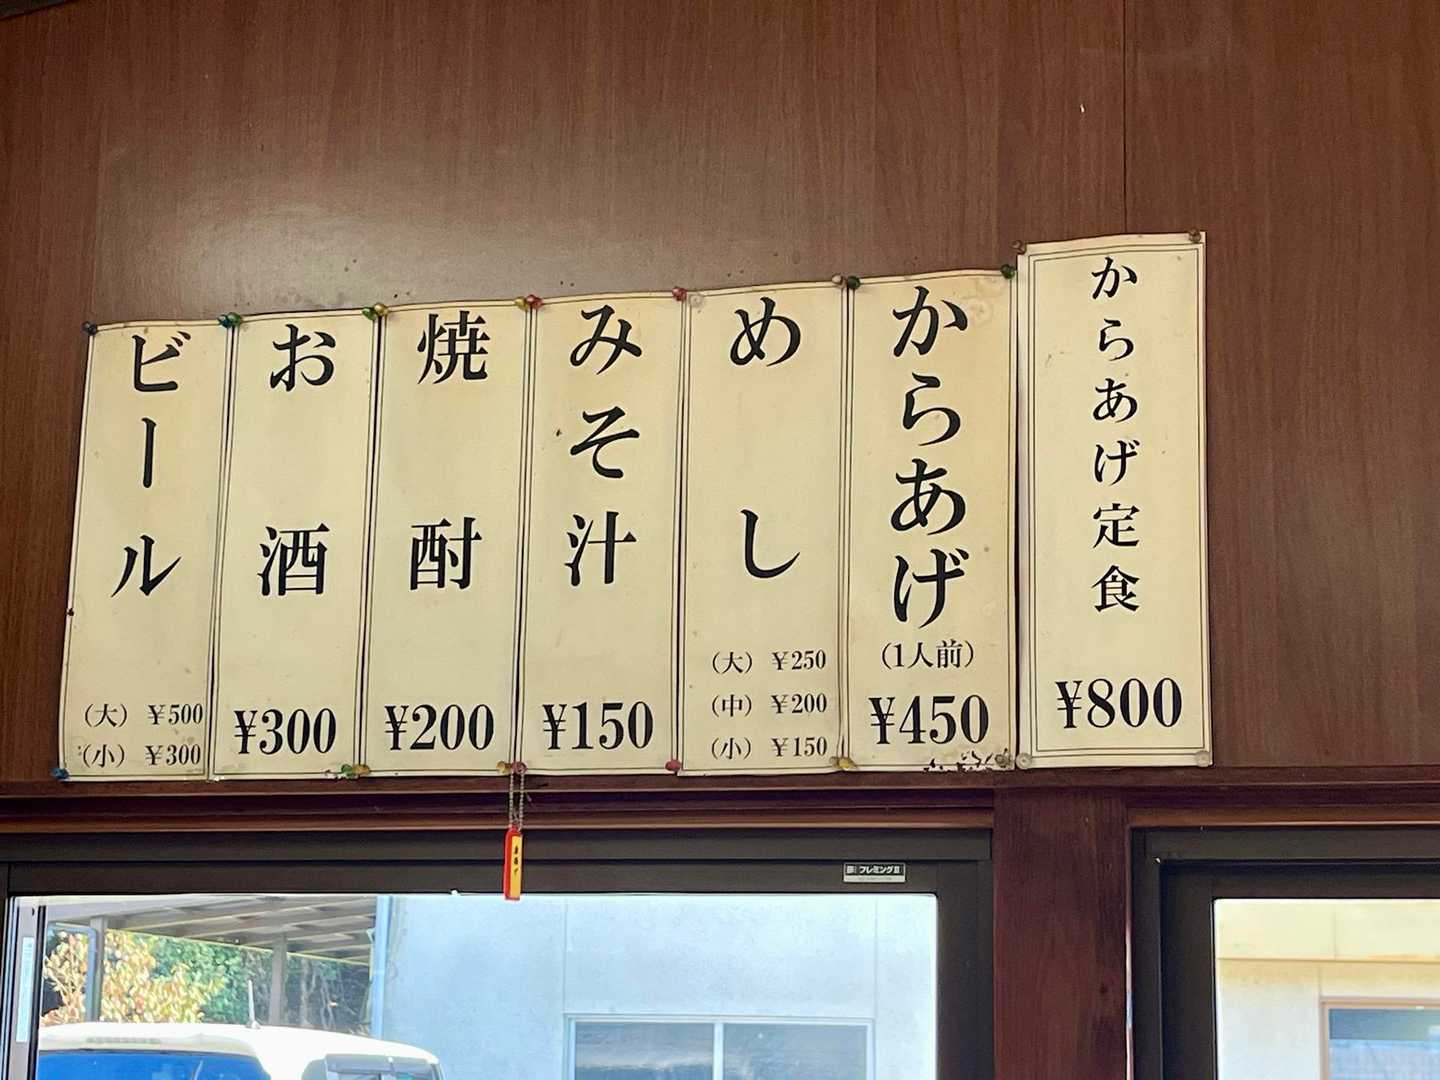 からあげ定食
¥800
からあげ
(1人前)
¥450
めし
(大) ¥250
(中) ¥200
(小) ¥150
みそ汁
¥150
焼酎
¥200
お酒
¥300
ビール
(大) ¥500
(小) ¥300
フレミングⅡ